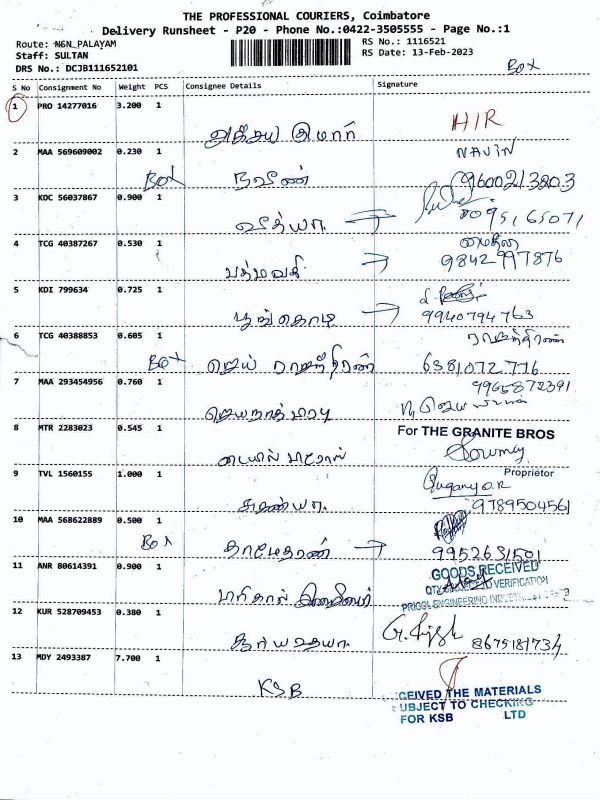 THE PROFESSIONAL COURIERS, Coimbatore
Delivery Runsheet - P20 - Phone No.:0422-3505555 - Page No.:1
Route: NGN_PALAYAM
RS No.: 1116521
Staff: SULTAN
RS Date: 13-Feb-2023
DRS No.: DCJB111652101
BOX
S No Consignment No Weight PCS Consignee Details Signature
1 PRO 14277016 3.200 1
H/R
2 MAA 569609002 0.230 1 NAVIN
BOX நவீண் 9600213803
3 KOC 56037867 0.900 1
வித்யா 8095165071
4 TCG 40387267 0.530 1
பத்மவதி 9842997876
5 KDI 799634 0.725 1
பூங்கொடி 9940794763
6 TCG 40388853 0.605 1
BOX ஜெய் ராஜேந்திரண் 6381072776
7 MAA 293454956 0.760 1 9965872391
8 MTR 2283023 0.545 1 For THE GRANITE BROS
Sowmy
9 TVL 1560155 1.000 1 Proprietor
சுகண்யா 9789504561
10 MAA 568622889 0.500 1
BOX தாமோதரண் 9952631501
11 ANR 80614391 0.900 1 GOODS RECEIVED
VERIFICATION
ENGINEERING
12 KUR 528709453 0.380 1
8675181734
13 MDY 2493387 7.700 1
KSB
CEIVED THE MATERIALS
UBJECT TO CHECKING
FOR KSB LTD